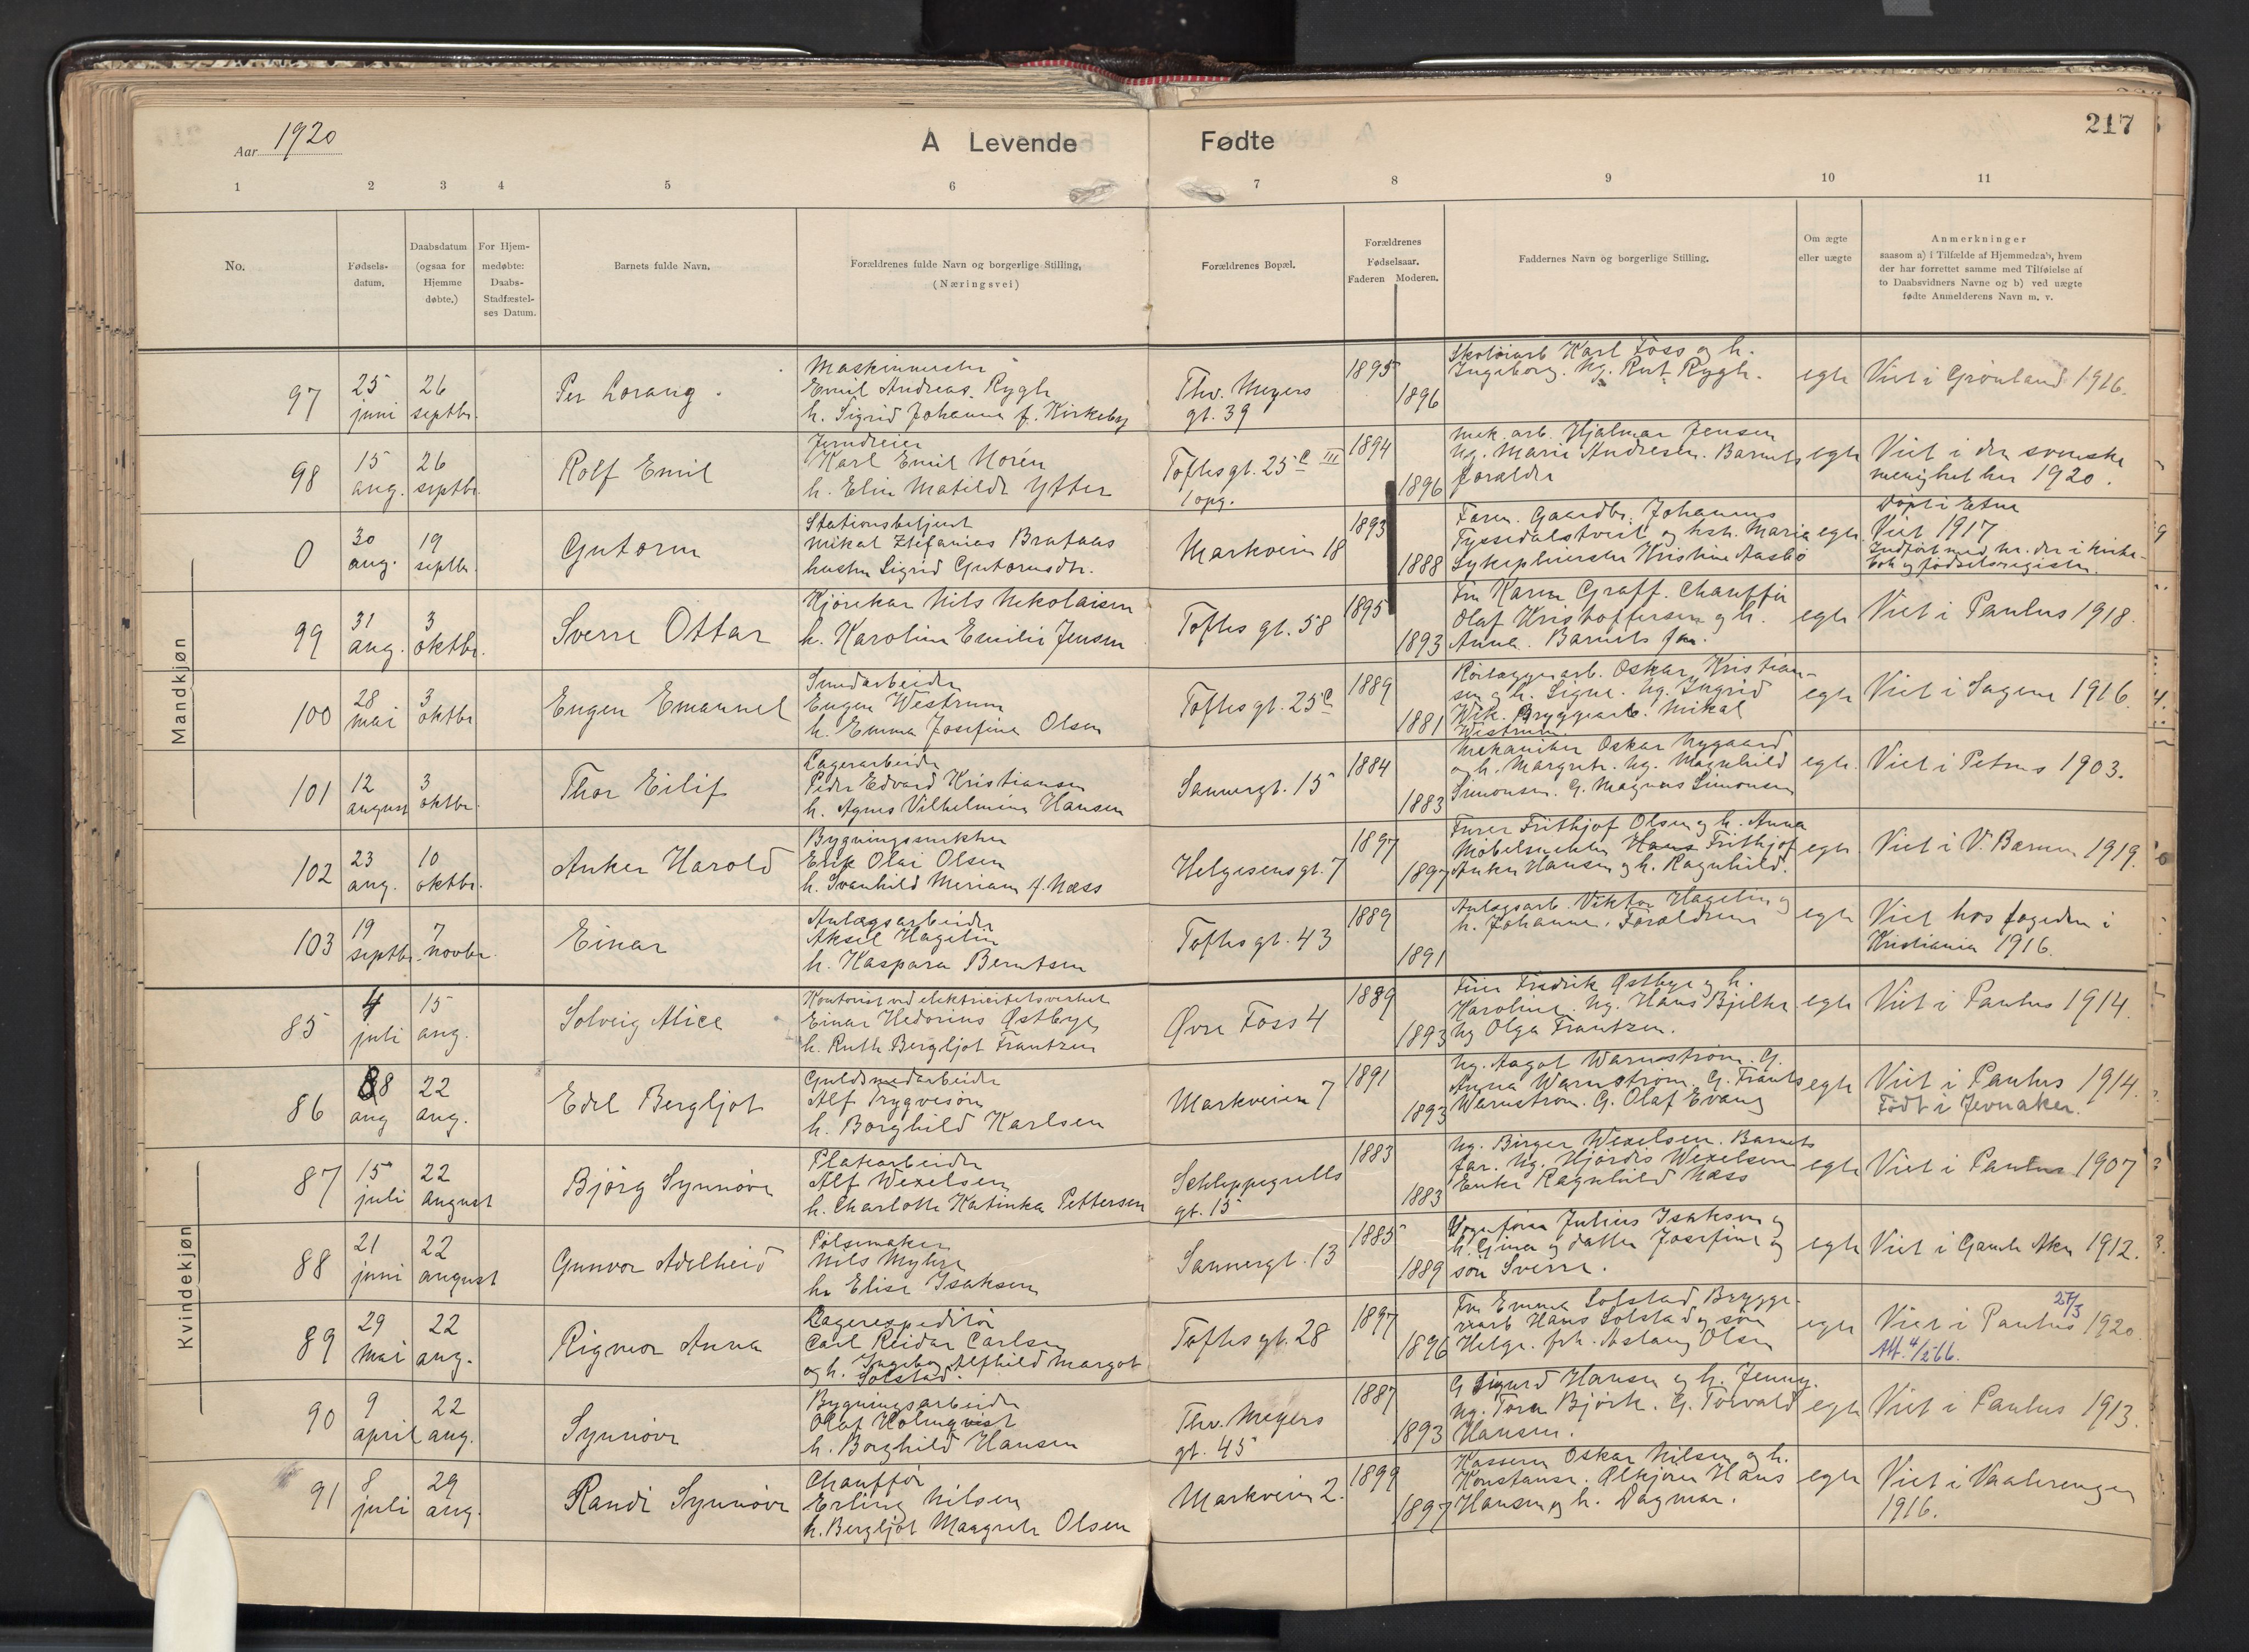 217
Aar 1920
A Levende Fødte
1 2 3 4 5 6 7 8 9 10 11
No.
Fødsels-
datum.
Daabsdatum
(ogsaa for
Hjemme
døbte.)
For Hjem-
medøbte:
Daabs-
Stadfæstel-
ses Datum.
Barnets fulde Navn.
Forældrenes fulde Navn og borgerlige Stilling.
(Næringsvei)
Forældrenes Bopæl.
Forældrenes
Fødselsaar.
Faderen Moderen.
Faddernes Navn og borgerlige Stilling.
Om ægte
eller uægte
Anmerkninger
saasom a) i Tilfælde af Hjemmedaab, hvem
der har forrettet samme med Tilføielse af
to Daabsvidners Navne og b) ved uægte
fødte Anmelderens Navn m. v.
Mandkjøn
97
25 juni
26 septbr.
Per Lorang
Emil Andreas Rygh
h. Sigrid Johanne f. Kirkeby
Thv. Meyers
gt. 39
1895
1896
Skotöiarb Karl Foss og h.
Ingeborg. Ug. Rut Rygh.
egte
Viet i Grønland 1916.
98
15 aug.
26 septbr.
Rolf Emil
Jerndreier
Karl Emil Norén
h. Elin Matilde Ytter
Toftesgt. 25 C III
1 opg.
1894
1896
Mek. arb. Hjalmar Jensen
Ug. Marie Andresen. Barnets
foreldre
egte
Viet i den svenske
menighet her 1920.
0
30 aug.
19 septbr.
Gutorm
Stationsbetjent
Mikal Zefanias Brataas
hustru Sigrid Gutormsdtr.
Markveien 18
1893
1888
Farm. Gaardbr. Johannes
Tyssedalstveit og hstr. Maria
Sykepleierske Kristine Aasbö
egte
Döpt i Etne
Viet 1917
Indført med nr. der i kirke-
bok og fødselsregister.
99
31 aug.
3 oktbr.
Sverre Ottar
Kjörekar Nils Nikolaisen
h. Karoline Emilie Jensen
Toftes gt. 58
1895
1893
Fru Karen Graff. Chauffør
Olaf Kristoffersen og h.
Anna. Barnets far.
egte
Viet i Paulus 1918.
100
28 mai
3 oktbr
Eugen Emanuel
Smedarbeider
Eugen Westrum
h. Emma Josefine Olsen
Toftesgt. 25 C
1889
1881
Rörlæggerarb. Oskar Kristian-
sen og h. Signe. Ug. Ingrid
Wik. Bryggearb. Mikal
Westrum.
egte
Viet i Sagene 1916.
101
12 august
3 oktbr.
Thor Eilif
Lagerarbeider
Peder Edvard Kristiansen
h. Agnes Vilhelmine Hansen
Sannergt. 15
1884
1883
Mekaniker Oskar Nygaard
og h. Margrete. Ug. Magnhild
Simonsen. G. Magnus Simonsen
egte.
Viet i Petrus 1903.
102
23 aug.
10 oktbr.
Anker Harold
Bygningssnekker
Erik Olai Olsen
h. Svanhild Meriam f. Næss
Helgesensgt. 7
1897
1897
Furer Frithjof Olsen og h. Anna
Möbelsnekker Hans Frithjof
Anker Hansen og h. Ragnhild.
egte
Viet i V. Bærum 1919.
103
19 septbr.
7 novbr.
Einar
Anlægsarbeider
Aksel Hagelin
h. Kaspara Berntsen
Toftesgt. 43
1889
1891
Anlægsarb. Viktor Hagelin og
h. Johanne. Foreldrene
egte
Viet hos fogeden i
Kristiania 1916.
Kvindekjøn
85
4 juli
15 aug.
Solveig Alice
Kontorist ved elektricitetsverket
Einar Hedorius Østbye
h. Ruth Bergljot Frantzen
Øvre Foss 4
1889
1893
Fredrik Østbye og h.
Karoline. Ug. Hans Bjelke
Ug Olga Frantzen.
egte
Viet i Paulus 1914.
86
8 aug
22 aug.
Edel Bergljot
Guldsmedarbeider
Alf Trygveson
h. Borghild Karlsen
Markveien 7
1891
1893
Ug. Aagot Warnström. G.
Anna Warnström. G. Frants
Warnström. G. Olaf Evang
egte
Viet i Paulus 1914.
Födt i Jevnaker.
87
15 juli
22 august
Bjørg Synnöve
Platearbeider
Alf Wexelsen
h. Charlotte Katinka Pettersen
Schleppegrells
gt. 15
1883
1883
Ug. Birger Wexelsen. Barnets
far. Ug. Hjördis Wexelsen
Enke Ragnhild Næss
egte
Viet i Paulus 1907
88
21 juni
22 august
Gunvor Adelheid
Pölsemaker
Nils Myhre
h. Elise Isaksen
Sannergt. 13
1885
1889
Vognfører Julius Isaksen og
h. Gina og datter Josefine og
sön Sverre.
egte
Viet i Gamle Aker 1912.
89
29 mai
22 aug.
Rigmor Anna
Lagerexpeditör
Carl Reidar Carlsen
og h. Ingeborg Alfhild Margot
Solstad.
Toftesgt. 28
1897
1896
Fru Emma Solstad Brygge-
riarb Hans Solstad og sön
Helge. frk. Aslaug Olsen
egte
Viet i Paulus 27/3 1920.
Att. 4/5 66.
90
9 april
22 aug.
Synnöve
Bygningsarbeider
Olaf Holmqvist
h. Borghild Hansen
Thv. Meyers
gt. 45
1887
1893
G Sigurd Hansen og h. Jenny.
Ug. Tora Björk. G. Torvald
Hansen.
egte
Viet i Paulus 1913.
91
8 juli
29 aug.
Randi Synnöve
Chauffør
Erling Nilsen
h. Bergljot Margrete Olsen
Markveien 2.
1899
1897
Kasserer Oskar Nilsen og h.
Konstanse. Ølkjører Hans
Hansen og h. Dagmar.
egte
Viet i Vaalerengen
1916.